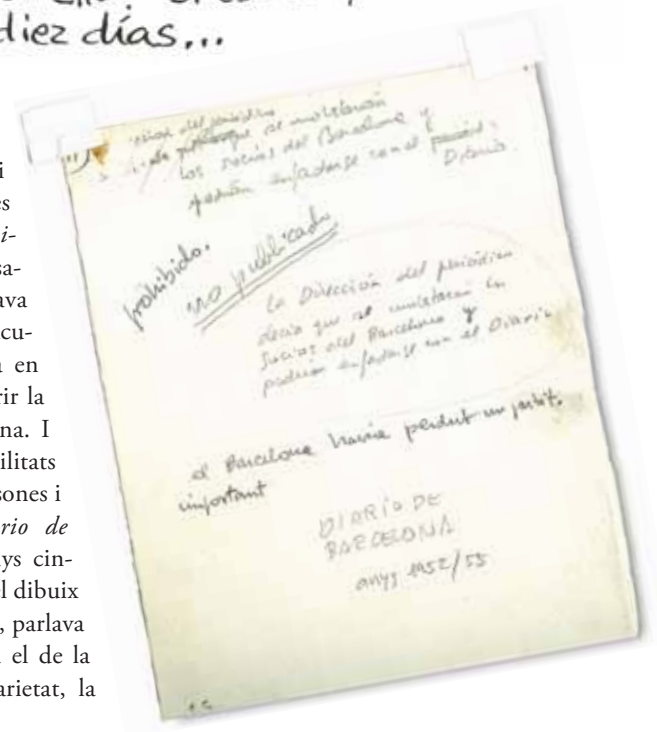 diez días...
i
es
i-
sa-
ava
cu-
en
rir la
na. I
ilitats
sones i
rio de
ys cin-
el dibuix
, parlava
el de la
arietat, la
del periódico
que se molestarán
los socios del Barcelona y
podrán enfadarse con el
Diario.
prohibido.
no publicado
La Dirección del periódico
decía que se molestarán los
socios del Barcelona y
podrían enfadarse con el Diario
el Barcelona havia perdut un partit
important
DIARIO DE
BARCELONA
anys 1952/55